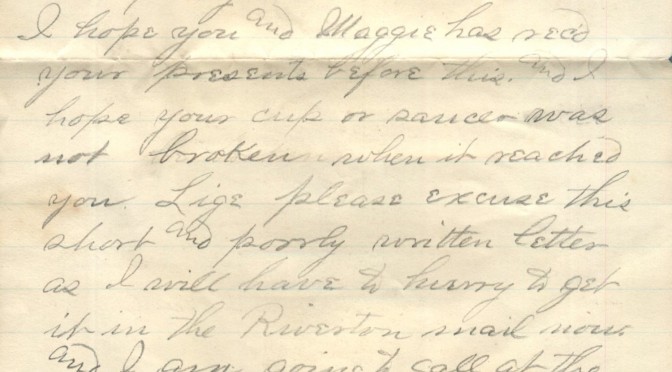 I hope you and Maggie has rec'd
your presents before this. and I
hope your cup or saucer was
not broken when it reached
you. Lige please excuse this
short and porrly written letter
as I will have to hurry to get
it in the Riverton mail now
and I am going to call at the